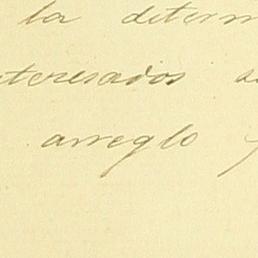 la determ
nteresados
arreglo